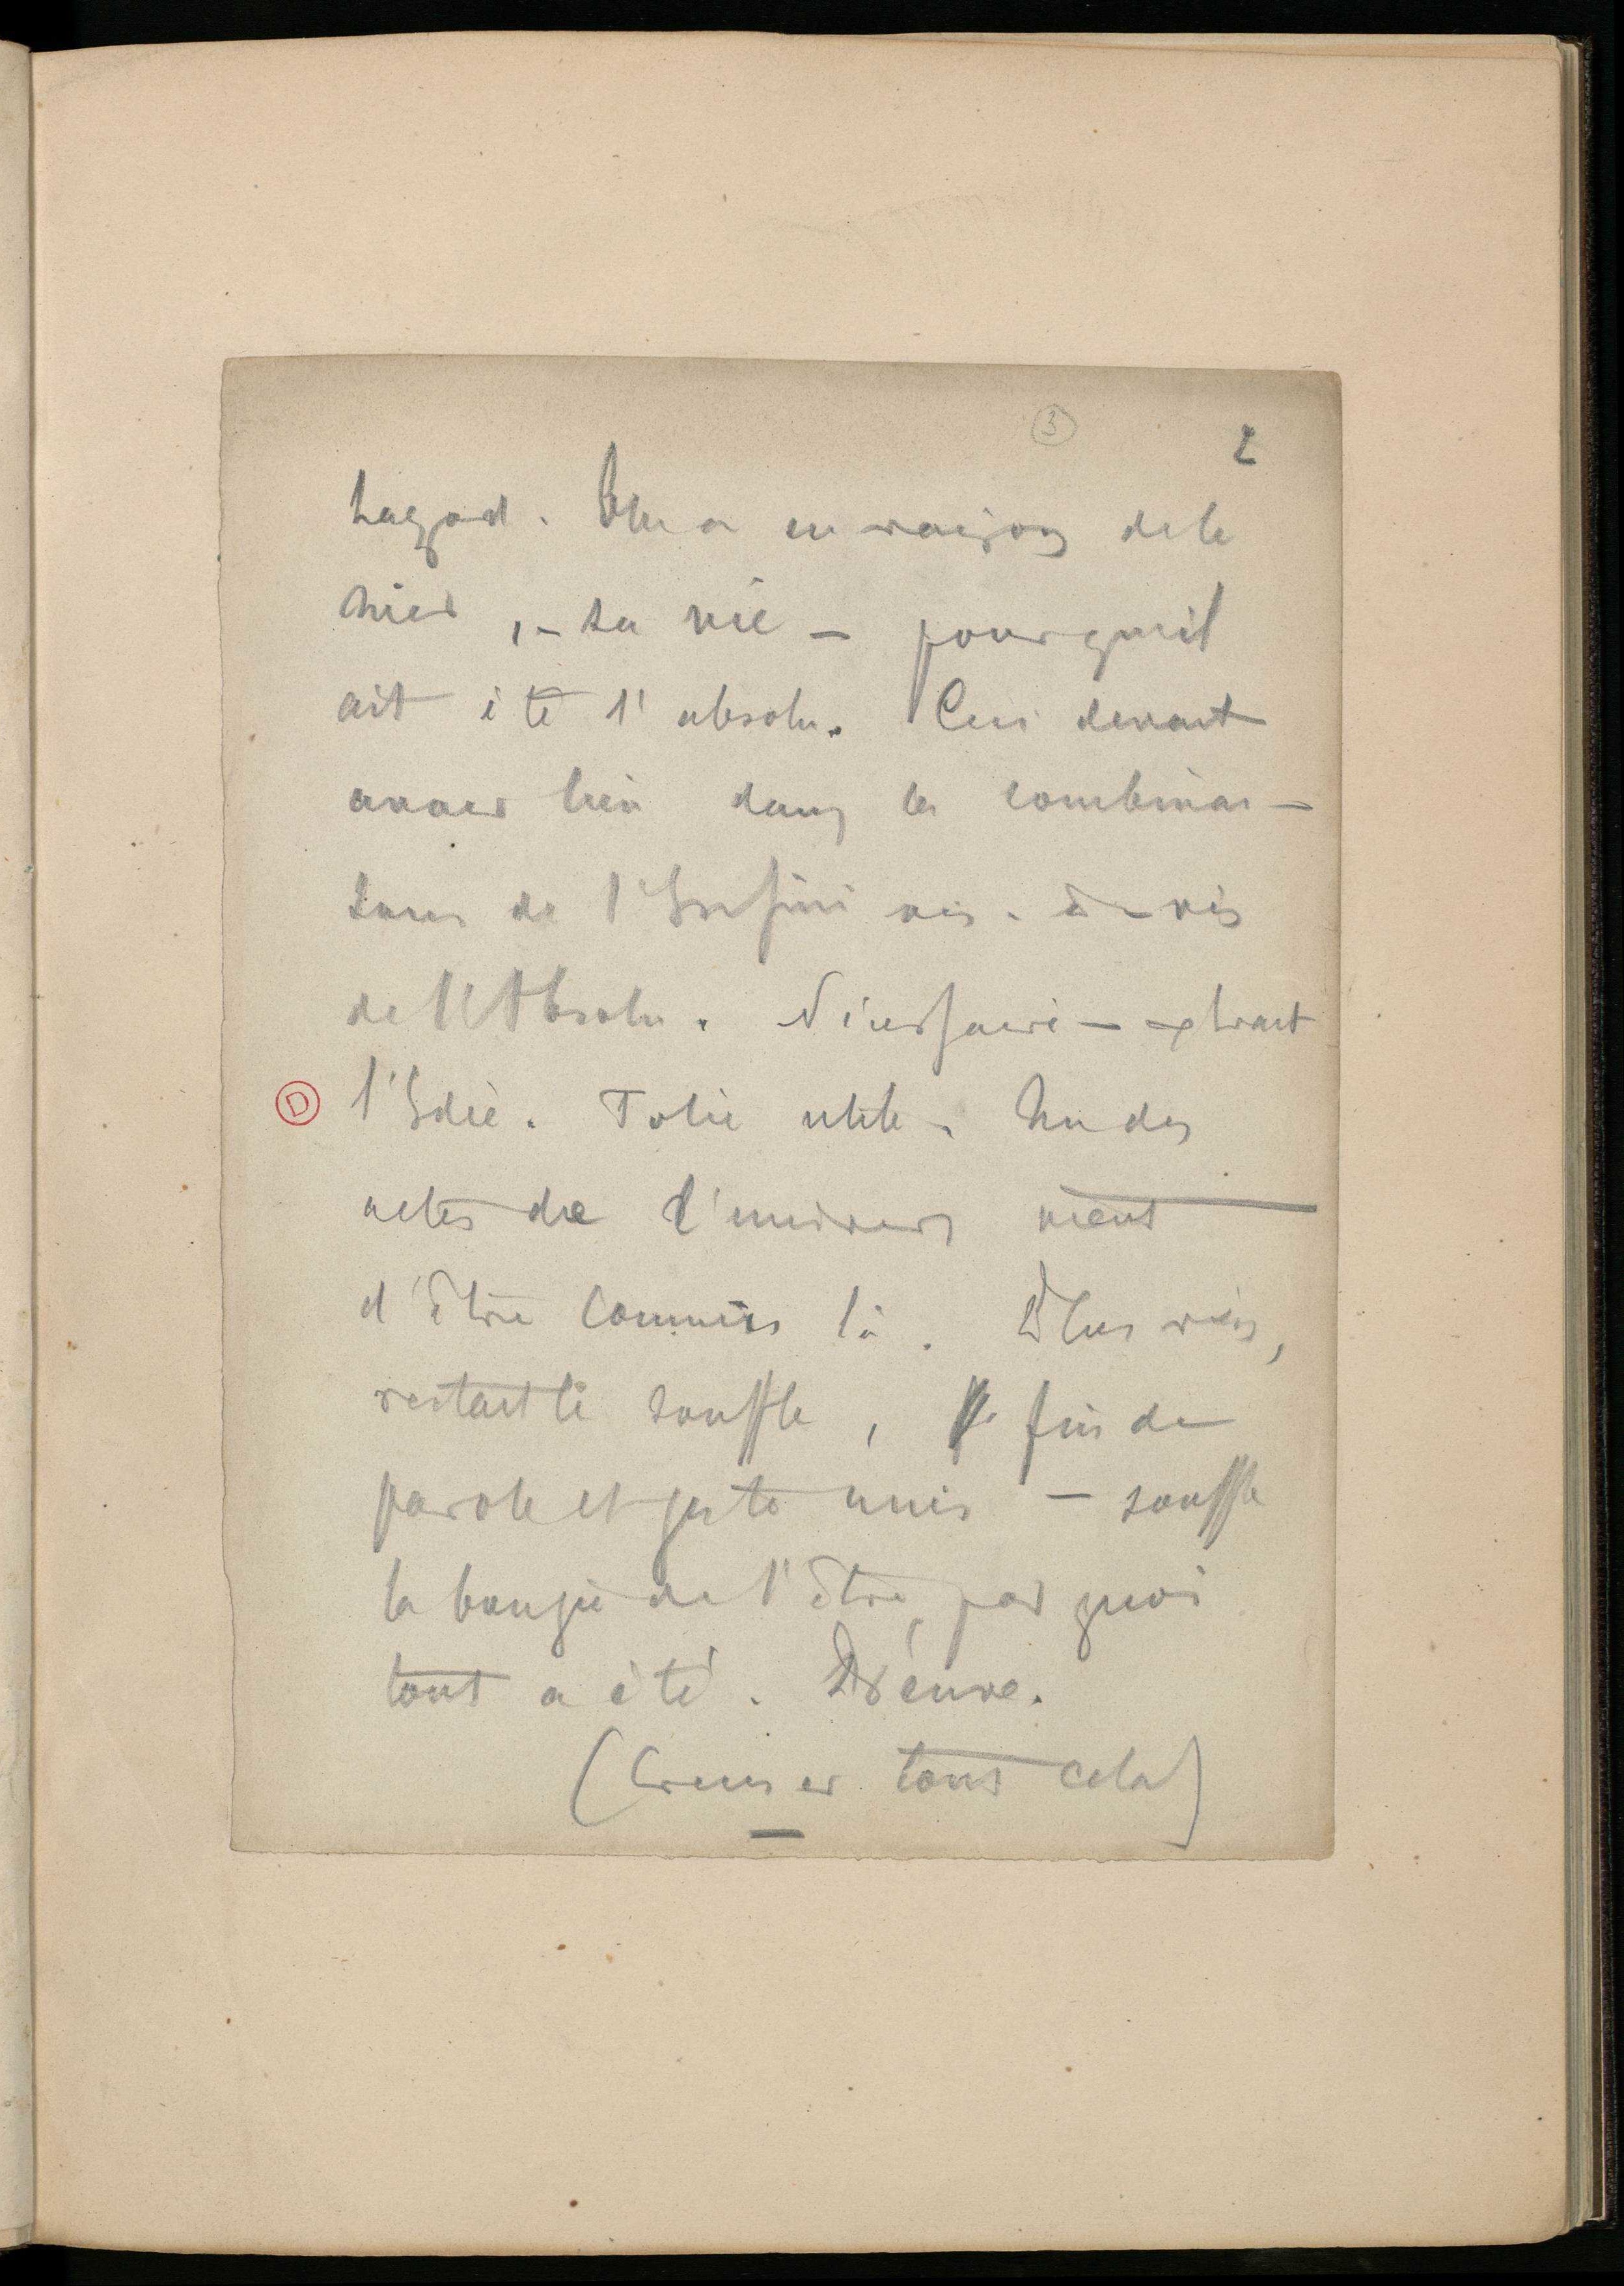 3
2
hazard. Elle a eu raison de le
nier, – sa vie – pour qu'il
ait été l'absolu. Ceci devait
avoir lieu dans les combinai-
sons de l'Infini vis-à-vis
de l'Absolu. Nécessaire – extrait
D
l'Idée. Folie utile. Un des
actes de l'univers vient
d'être commis là. Plus rien,
restait le souffle, fin de
parole et geste unis – souffle
la bougie de l'être, par quoi
tout a été. Preuve.
(Creuser tout cela)